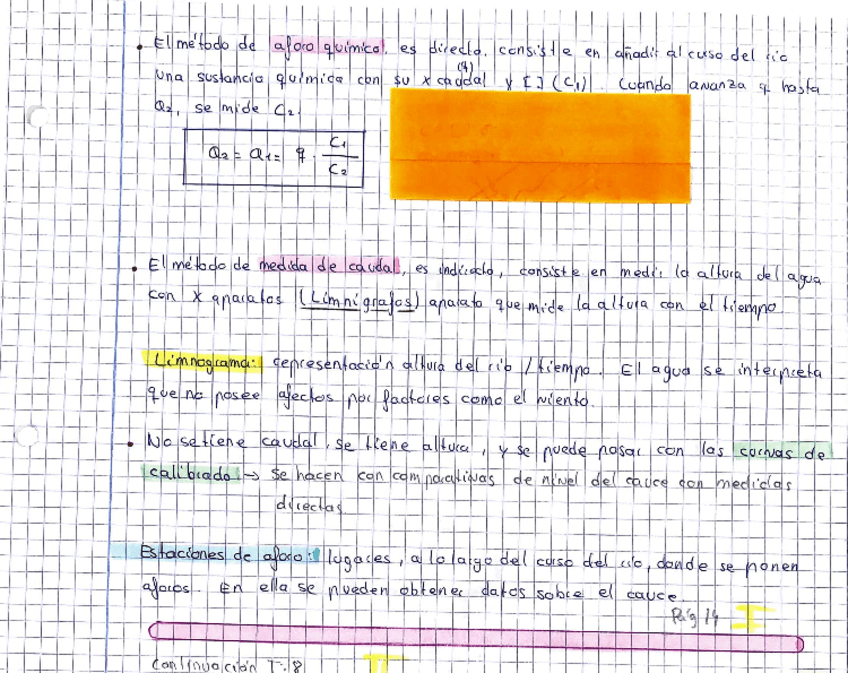 • El método de aforo químico, es directo, consiste en añadir al curso del río
una sustancia química con su x caudal (q) y [ ] (C₁). Cuando avanza q hasta
Q₂, se mide C₂.
Q₂ = Q₁ = q · C₁/C₂
• El método de medida de caudal, es indirecto, consiste en medir la altura del agua
con x aparatos (Limnígrafos) aparato que mide la altura con el tiempo.
Limnograma: representación altura del río / tiempo. El agua se interpreta
que no posee afectos por factores como el viento.
• No se tiene caudal, se tiene altura, y se puede pasar con las curvas de
calibrado → se hacen con comparativas de nivel del cauce con medidas
directas
Estaciones de aforo: lugares, a lo largo del curso del río, donde se ponen
aforos. En ella se pueden obtener datos sobre el cauce.
Pág 14 I
Continuación T.8 II